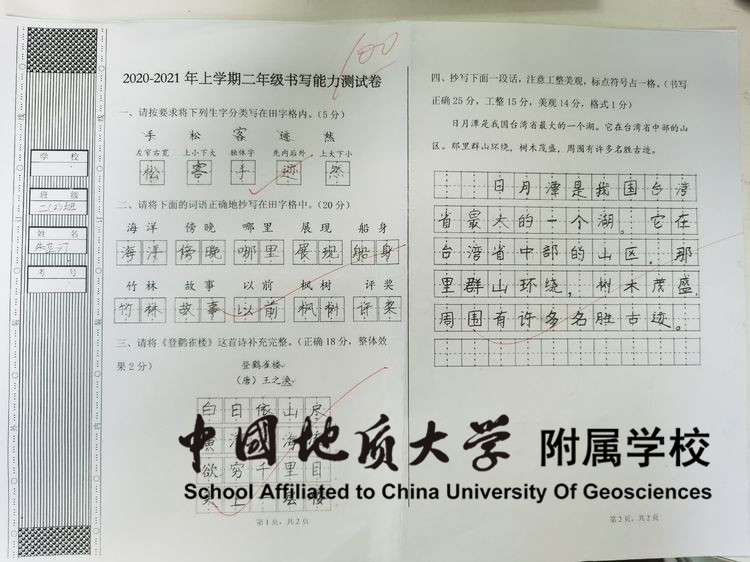 100
2020-2021年上学期二年级书写能力测试卷
学校
班级
二(2)班
姓名
考号
一、请按要求将下列生字分类写在田字格内。(5分)
手 松 客 迹 然
左窄右宽 上小下大 独体字 先内后外 上大下小
松 客 手 迹 然
二、请将下面的词语正确地抄写在田字格中。(20分)
海洋 傍晚 哪里 展现 船身
海洋 傍晚 哪里 展现 船身
竹林 故事 以前 枫树 评奖
竹林 故事 以前 枫树 评奖
三、请将《登鹳雀楼》这首诗补充完整。(正确18分，整体效
果2分)
登鹳雀楼
(唐)王之涣
白日依山尽
海
欲穷千里目
上 楼
第1页，共2页
四、抄写下面一段话，注意工整美观，标点符号占一格。(书写
正确25分，工整15分，美观14分，格式1分)
日月潭是我国台湾省最大的一个湖。它在台湾省中部的山
区。那里群山环绕，树木茂盛，周围有许多名胜古迹。
日月潭是我国台湾
省最大的一个湖。它在
台湾省中部的山区。那
里群山环绕，树木茂盛，
周围有许多名胜古迹。
第2页，共2页
中國地质大学 附属学校
School Affiliated to China University Of Geosciences